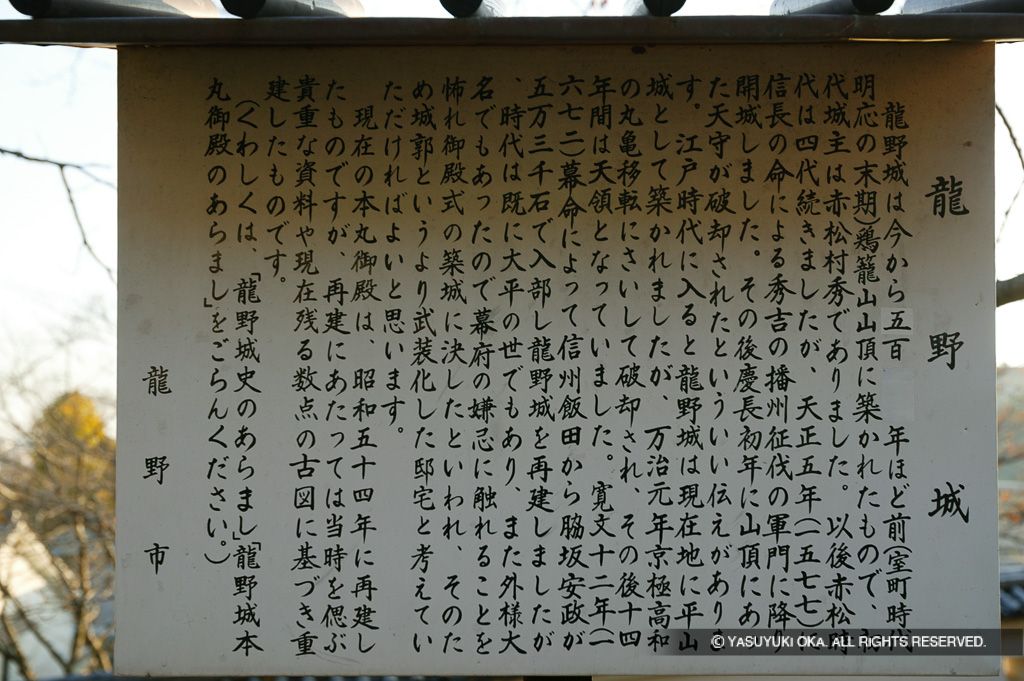 龍野城
龍野城は今から五百 年ほど前(室町時代
明応の末期)鶏籠山山頂に築かれたもので、初
代城主は赤松村秀でありました。以後赤松時
代は四代続きましたが、天正五年(一五七七)に
信長の命による秀吉の播州征伐の軍門に降り
開城しました。その後慶長初年に山頂にあっ
た天守が破却されたといういい伝えがありま
す。江戸時代に入ると龍野城は現在地に平山
城として築かれましたが、万治元年京極高和
の丸亀移転にさいして破却され、その後十四
年間は天領となっていました。寛文十二年(一
六七二)幕命によって信州飯田から脇坂安政が
五万三千石で入部し龍野城を再建しましたが
、時代は既に大平の世でもあり、また外様大
名でもあったので幕府の嫌忌に触れることを
怖れ御殿式の築城に決したといわれ、そのた
め城郭というより武装化した邸宅と考えてい
ただければよいと思います。
現在の本丸御殿は、昭和五十四年に再建し
たものですが、再建にあたっては当時を偲ぶ
貴重な資料や現在残る数点の古図に基づき重
建したものです。
(くわしくは、「龍野城史のあらまし」「龍野城本
丸御殿のあらまし」をごらんください。)
龍野市
© YASUYUKI OKA. ALL RIGHTS RESERVED.